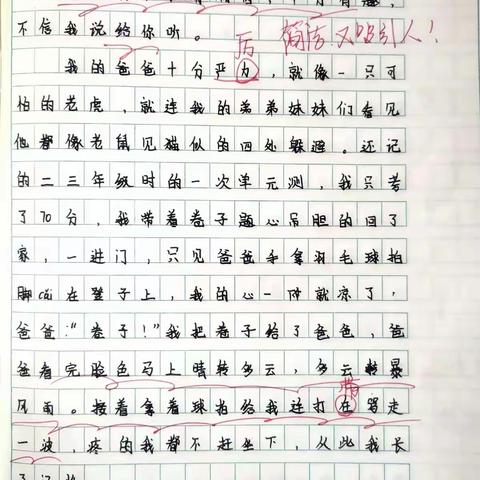 不信我说给你听。
简洁又吸引人!
厉
我的爸爸十分严力,就像一只可
怕的老虎,就连我的弟弟妹妹们看见
他都像老鼠见猫似的四处躲避。还记
的二三年级时的一次单元测,我只考
了70分,我带着卷子题心吊胆的回了
家,一进门,只见爸爸手拿羽毛球拍
脚cǎi在凳子上,我的心一阵就凉了,
爸爸:“卷子!”我把卷子给了爸爸,爸
爸看完脸色马上晴转多云,多云转暴
带
风雨。接着拿着球拍给我连打在骂走
一波,疼的我都不赶坐下,从此我长